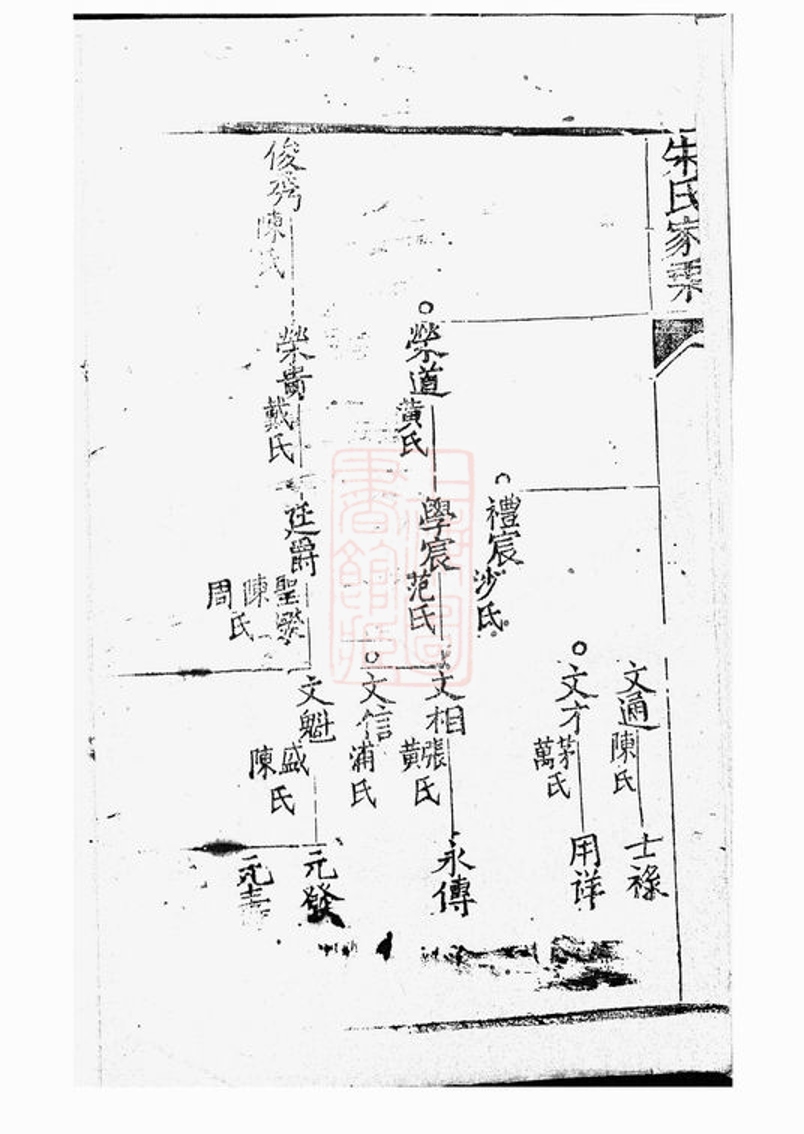 朱氏家乘
文通 陳氏
士祿
文才 茅萬氏
用詳
禮宸 沙氏
榮道 黃氏
學宸 范氏
文相 張黃氏
永傳
文信 浦氏
俊 陳氏
榮貴 戴氏
廷爵 聖 陳周氏
文魁 盛陳氏
元發
元壽
上海圖書館藏